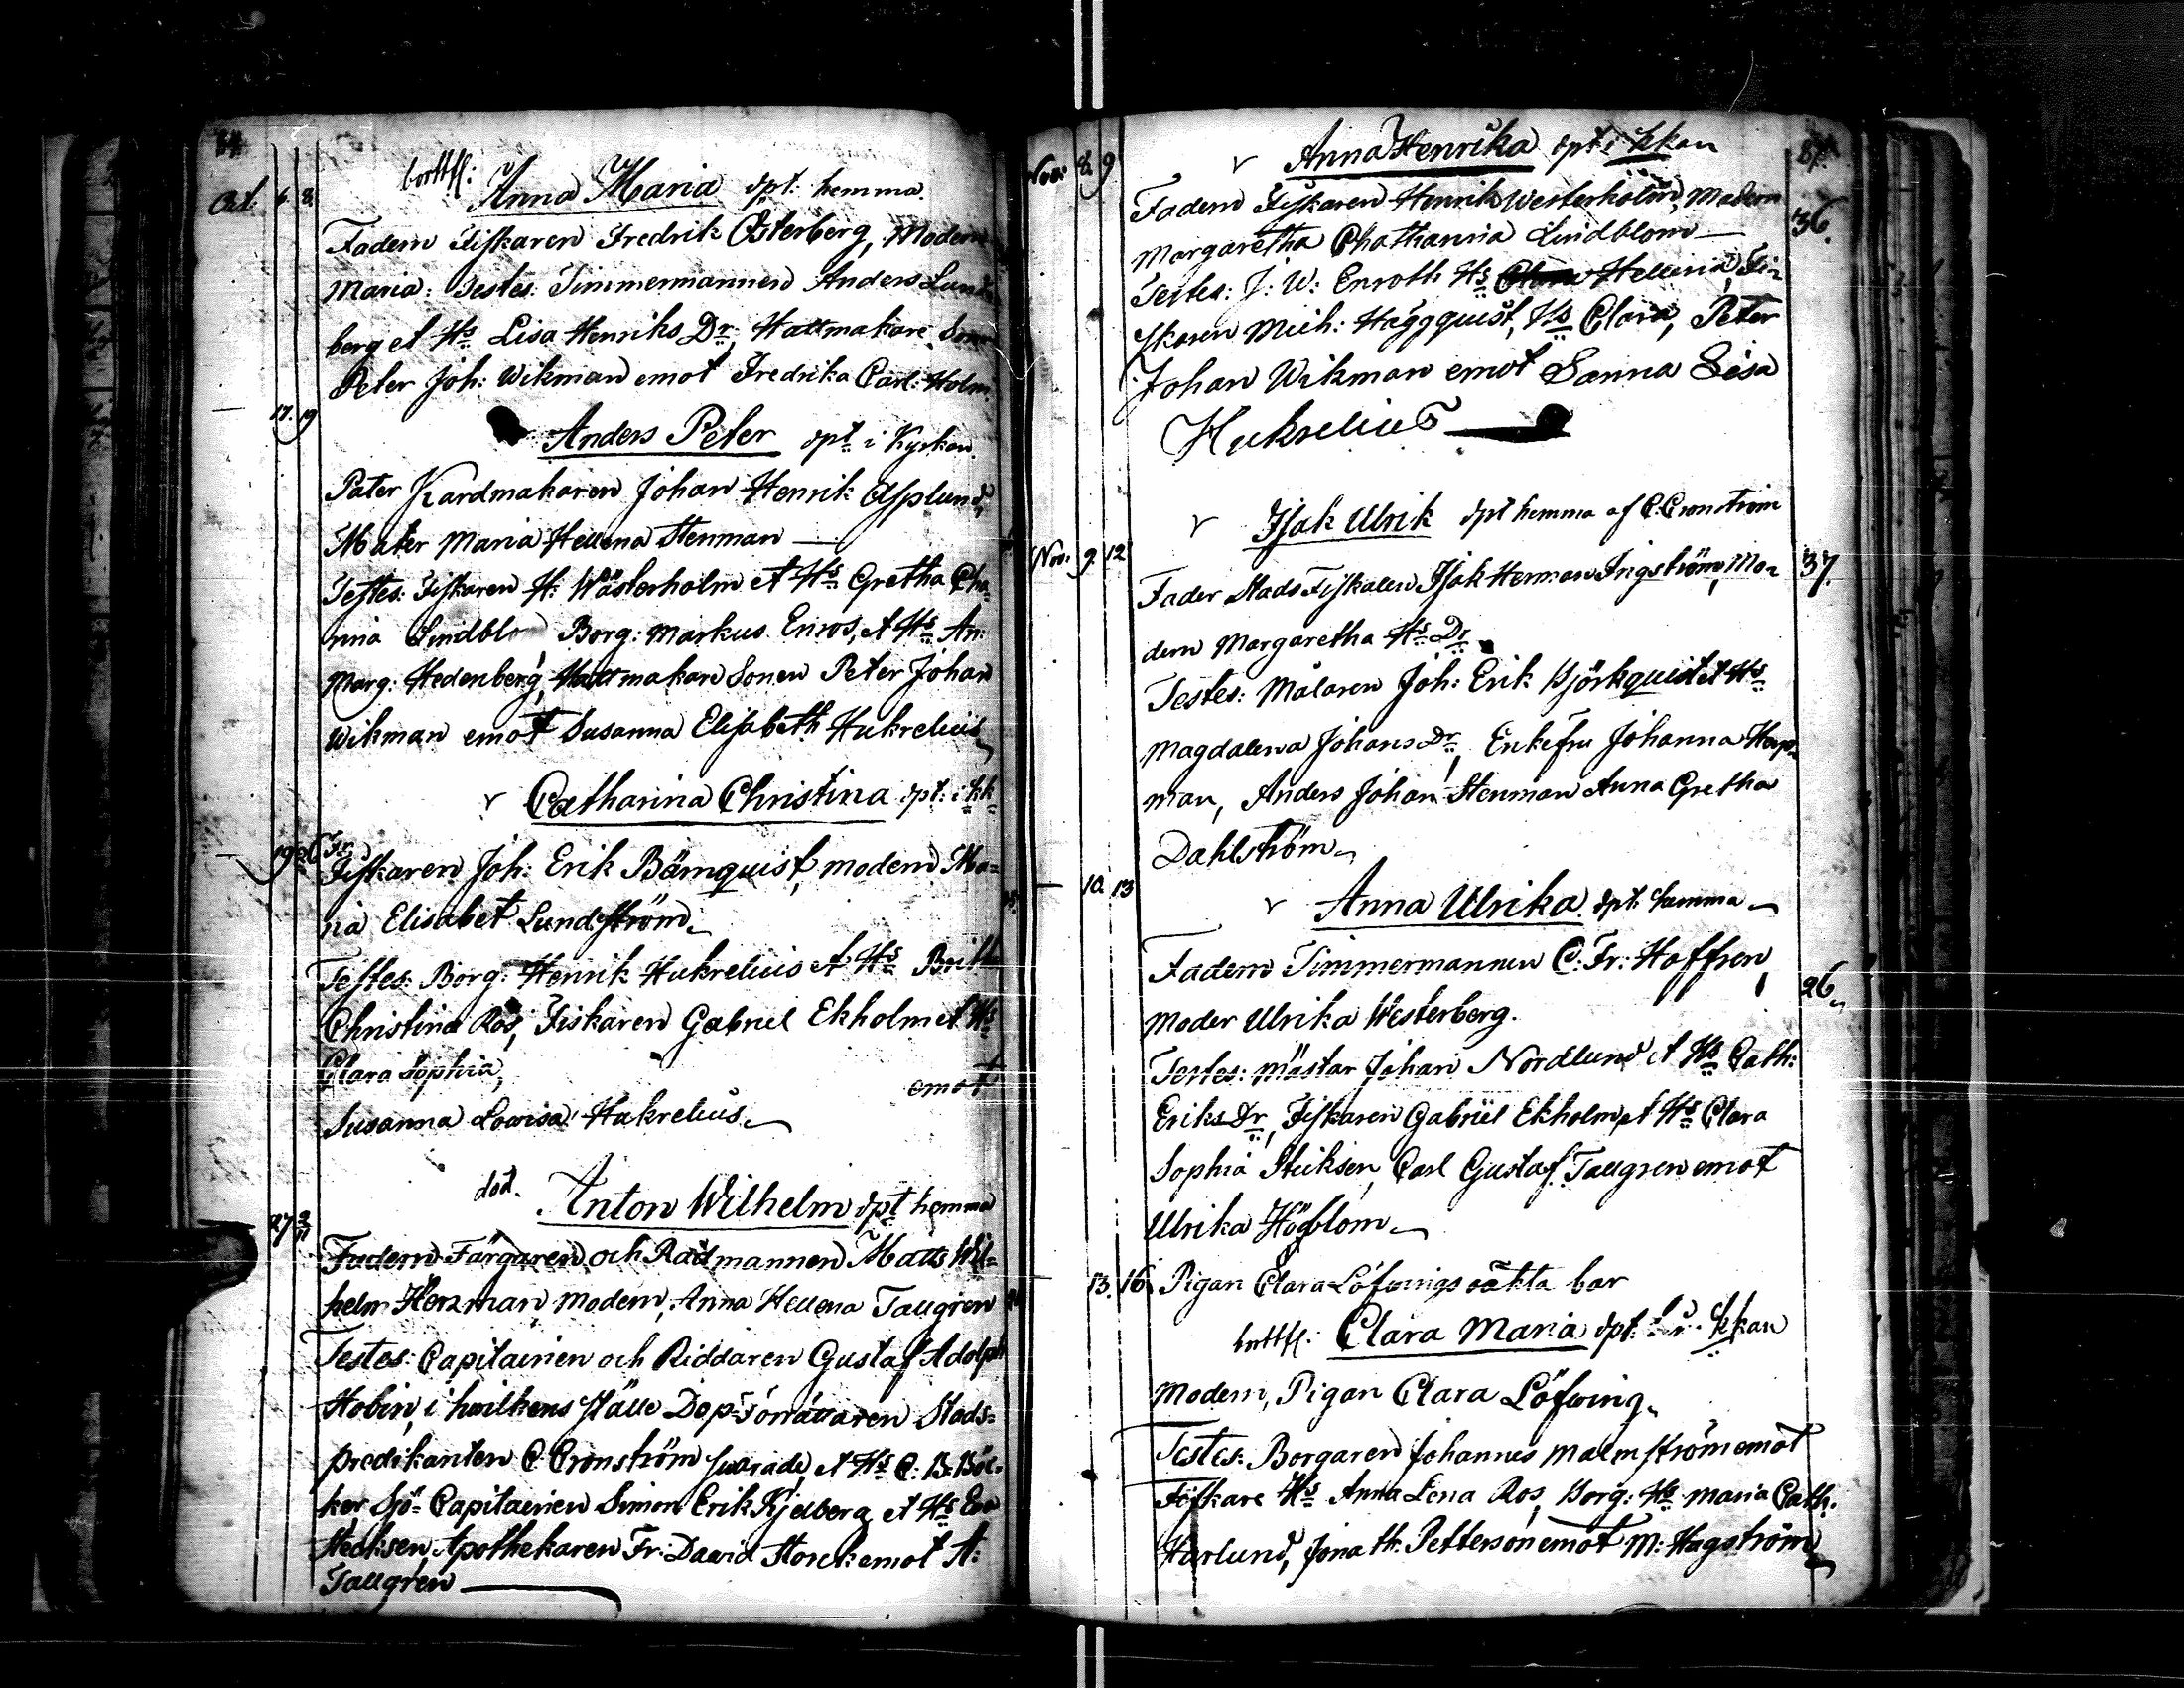 bortfl:
Anna Maria dpt. hemma.
Oct. 6. 8.
Fadern Fiskaren Fredrik Österberg, Modern
Maria: Testes: Timmermannen Anders Lund
berg et Hs Lisa Henriks Dr, Hattmakare Son
Peter Joh: Wikman emot Fredrika Carl: Holm.
17. 19
Anders Peter dpt i Kyrkan.
Pater Kardmakaren Johan Henrik Asplund,
Mater Maria Hellena Stenman —
Testes: Fiskaren H: Wästerholm et Hs Gretha Cha
nina Lindblo Borg: Markus Enros, et Hs An:
Marg: Hedenberg, Hattmakare Sonen Peter Johan
Wikman emot Susanna Elisabeth Hukrelius
Catharina Christina dpt: i kk
19
Fr
Fiskaren Joh: Erik Bärnquist, modern Ma=
ria Elisabet Lundström
Testes: Borg: Henrik Hukrelius et Hs Britta
Christina Ros, Fiskaren Gabriel Ekholm et Hs
Clara Sophia, emot
Susanna Lovisa Hukrelius
död.
Anton Wilhelm dpt hemma
27
Fadern Färgaren och Rådmannen Matts Wil=
helm Herzman modern, Anna Hellena Tallgren
Testes: Capitainen och Riddaren Gustaf Adolph
Hobin, i hvilkens ställe Dop-Förrättaren Stads=
predikanten C Cronström svarade, et Hs C: B: Böc=
ker Sjö-Capitainen Simon Erik Kjelberg et Hs Eva
Stecksen, Apothekaren Fr: David Storck emot A:
Tallgren
Nov: 8. 9
Anna Henrika dpt i kkan
Fadern Fiskaren Henrik Westerholm, Modern
36.
Margaretha Chatharina Lindblom —
Testes: J: W: Enroth Hs Hellena, Fi=
skaren Mich: Häggquist, Hs Clara, Peter
Johan Wikman emot Sanna Lisa
Hukrelius
Isak Ulrik dpt hemma af C. Cronström
Nov. 9. 12
37.
Fader Stads Fiskalen Isak Herman Ingström, Mo=
dern Margaretha Hs Dr
Testes: Målaren Joh: Erik Björkquist et Hs
Magdalena Johans Dr, Enkefru Johanna Hap=
man, Anders Johan Stenman Anna Gretha
Dahlström
— 10. 13
Anna Ulrika dpt. hemma
Fadern Timmermannen C: Fr: Hoffren,
26
Moder Ulrika Westerberg.
Testes: Mästar Johan Nordlund et Hs Cath:
Eriks Dr, Fiskaren Gabriel Ekholm et Hs Clara
Sophia Steksen, Carl Gustaf Tallgren emot
Ulrika Högblom
13. 16. Pigan Clara Löfvings oäkta bar
bortfl: Clara Maria dpt: kkan
Modern, Pigan Clara Löfving.
Testes: Borgaren Johannes Malmström emot
Fiskare Hs Anna Lena Ros, Borg: Hs Maria Cath:
Harlund, Jonath: Petterson emot M: Hagström